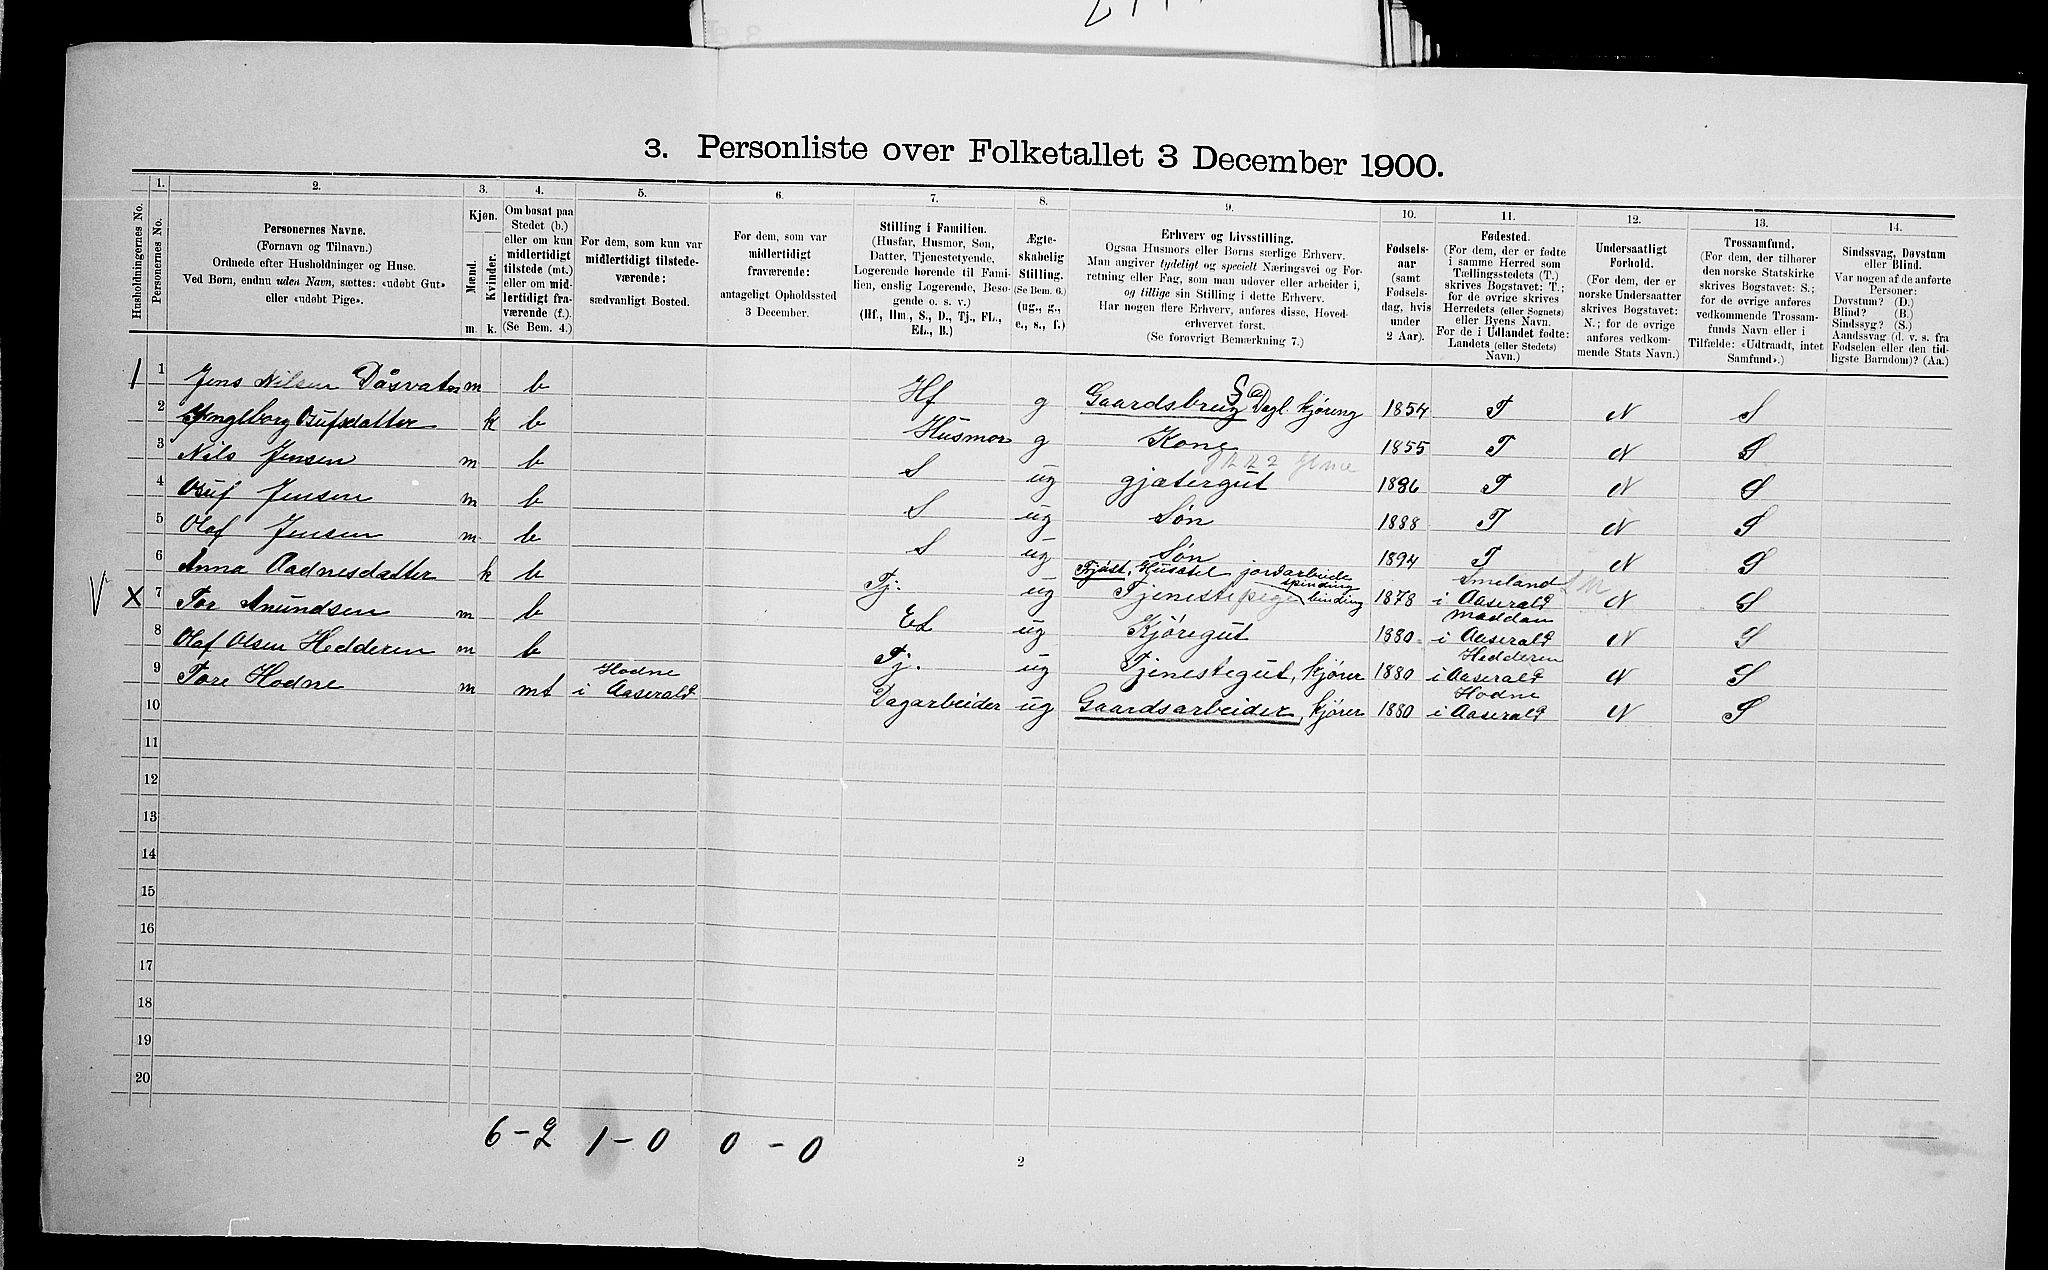 3. Personliste over Folketallet 3 December 1900.
Husholdningernes No.
1. Personernes No.
2. Personernes Navne.
(Fornavn og Tilnavn.)
Ordnede efter Husholdninger og Huse.
Ved Børn, endnu uden Navn, sættes: «udøbt Gut»
eller «udøbt Pige».
3. Kjøn.
Mænd. Kvinder.
m. k.
4. Om bosat paa
Stedet (b.)
eller om kun
midlertidigt
tilstede (mt.)
eller om mid-
lertidigt fra-
værende (f.).
(Se Bem. 4.)
5. For dem, som kun var
midlertidigt tilstede-
værende:
sædvanligt Bosted.
6. For dem, som var
midlertidigt
fraværende:
antageligt Opholdssted
3 December.
7. Stilling i Familien.
(Husfar, Husmor, Søn,
Datter, Tjenestetyende,
Logerende hørende til Fami-
lien, enslig Logerende, Besø-
gende o. s. v.)
(Hf., Hm., S., D., Tj., FL.,
EL., B.)
8. Ægte-
skabelig
Stilling.
(Se Bem. 6.)
(ug., g.,
e., s., f.)
9. Erhverv og Livsstilling.
Ogsaa Husmors eller Børns særlige Erhverv.
Man angiver tydeligt og specielt Næringsvei og For-
retning eller Fag, som man udøver eller arbeider i,
og tillige sin Stilling i dette Erhverv.
Har nogen flere Erhverv, anføres disse, Hoved-
erhvervet først.
(Se forøvrigt Bemærkning 7.)
10. Fødsels-
aar
(samt
Fødsels-
dag, hvis
under
2 Aar).
11. Fødested.
(For dem, der er fødte
i samme Herred som
Tællingsstedets (T.)
skrives Bogstavet: T.;
for de øvrige skrives
Herredets (eller Sognets)
eller Byens Navn.
For de i Udlandet fødte:
Landets (eller Stedets)
Navn.)
12. Undersaatligt
Forhold.
(For dem, der er
norske Undersaatter
skrives Bogstavet:
N.; for de øvrige
anføres vedkom-
mende Stats Navn.)
13. Trossamfund.
(For dem, der tilhører
den norske Statskirke
skrives Bogstavet: S.;
for de øvrige anføres
vedkommende Trossam-
funds Navn eller i
Tilfælde: «Udtraadt, intet
Samfund».)
14. Sindssvag, Døvstum
eller Blind.
Var nogen af de anførte
Personer:
Døvstum? (D.)
Blind? (B.)
Sindssyg? (S.)
Aandssvag (d. v. s. fra
Fødselen eller den tid-
ligste Barndom)? (Aa.)
1 1 Jens Nilsen Dåsvatn m b Hf g Gaardsbrug S Dagl. kjøring 1854 T N S
2 Yngleborg Osufsdatter k b Husmor g Kone 1855 T N S
3 Nils Jensen m b S ug gjætergut 1886 T N S
4 Osuf Jensen m b S ug Søn 1888 T N S
5 Olaf Jensen m b S ug Søn 1894 T N S
6 Anna Aadnesdatter k b Tj. ug Fjøst, Husstel jordarbeide spinding Tjenestepige binding 1878 Smeland i Aaserald N S
V X 7 Tor Anundsen m b EL ug Kjøregut 1880 maddan i Aaserald N S
8 Olaf Olsen Hedderen m b Tj. ug Tjenestegut, kjører 1880 Hedderen i Aaserald N S
9 Tore Hodne m mt Hodne i Aaserald Dagarbeider ug Gaardsarbeider, kjører 1880 Hodne i Aaserald N S
10
11
12
13
14
15
16
17
18
19
20
6 - 2 1 - 0 0 - 0
2